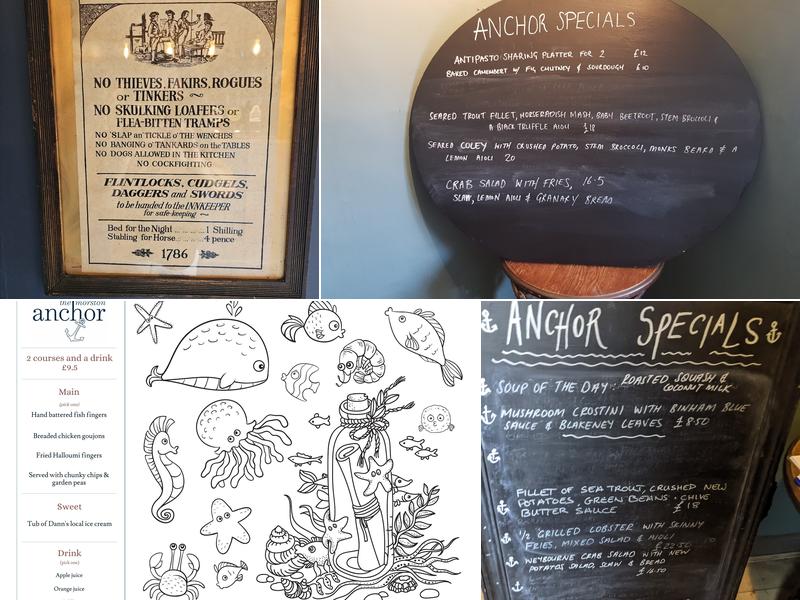 NO THIEVES, FAKIRS, ROGUES
or TINKERS
NO SKULKING LOAFERS or
FLEA-BITTEN TRAMPS
NO 'SLAP an' TICKLE o' THE WENCHES
NO BANGING o' TANKARDS on the TABLES
NO DOGS ALLOWED IN THE KITCHEN
NO COCKFIGHTING
FLINTLOCKS, CUDGELS,
DAGGERS and SWORDS
to be handed to the INNKEEPER
for safe-keeping
Bed for the Night ... ... ... 1 Shilling
Stabling for Horse ... ... ... 4 pence
1786
ANCHOR SPECIALS
ANTIPASTO SHARING PLATTER FOR 2 £12
BAKED CAMEMBERT W/ FIG CHUTNEY & SOURDOUGH £10
SEARED TROUT FILLET, HORSERADISH MASH, BABY BEETROOT, STEM BROCCOLI &
A BLACK TRUFFLE AIOLI £18
SEARED COLEY WITH CRUSHED POTATO, STEM BROCCOLI, MONKS BEARD & A
LEMON AIOLI 20
CRAB SALAD WITH FRIES, 16.5
SLAW, LEMON AIOLI & GRANARY BREAD
the morston
anchor
2 courses and a drink
£9.5
Main
(pick one)
Hand battered fish fingers
Breaded chicken goujons
Fried Halloumi fingers
Served with chunky chips &
garden peas
Sweet
Tub of Dann's local ice cream
Drink
(pick one)
Apple juice
Orange juice
ANCHOR SPECIALS
SOUP OF THE DAY: ROASTED SQUASH &
COCONUT MILK
MUSHROOM CROSTINI WITH BINHAM BLUE
SAUCE & BLAKENEY LEAVES £8.50
FILLET OF SEA TROUT, CRUSHED NEW
POTATOES GREEN BEANS · CHIVE
BUTTER SAUCE £18
1/2 GRILLED LOBSTER WITH SKINNY
FRIES, MIXED SALAD & AIOLI
£22.50
WEYBOURNE CRAB SALAD WITH NEW
POTATOES SALAD, SLAW & BREAD
£16.50